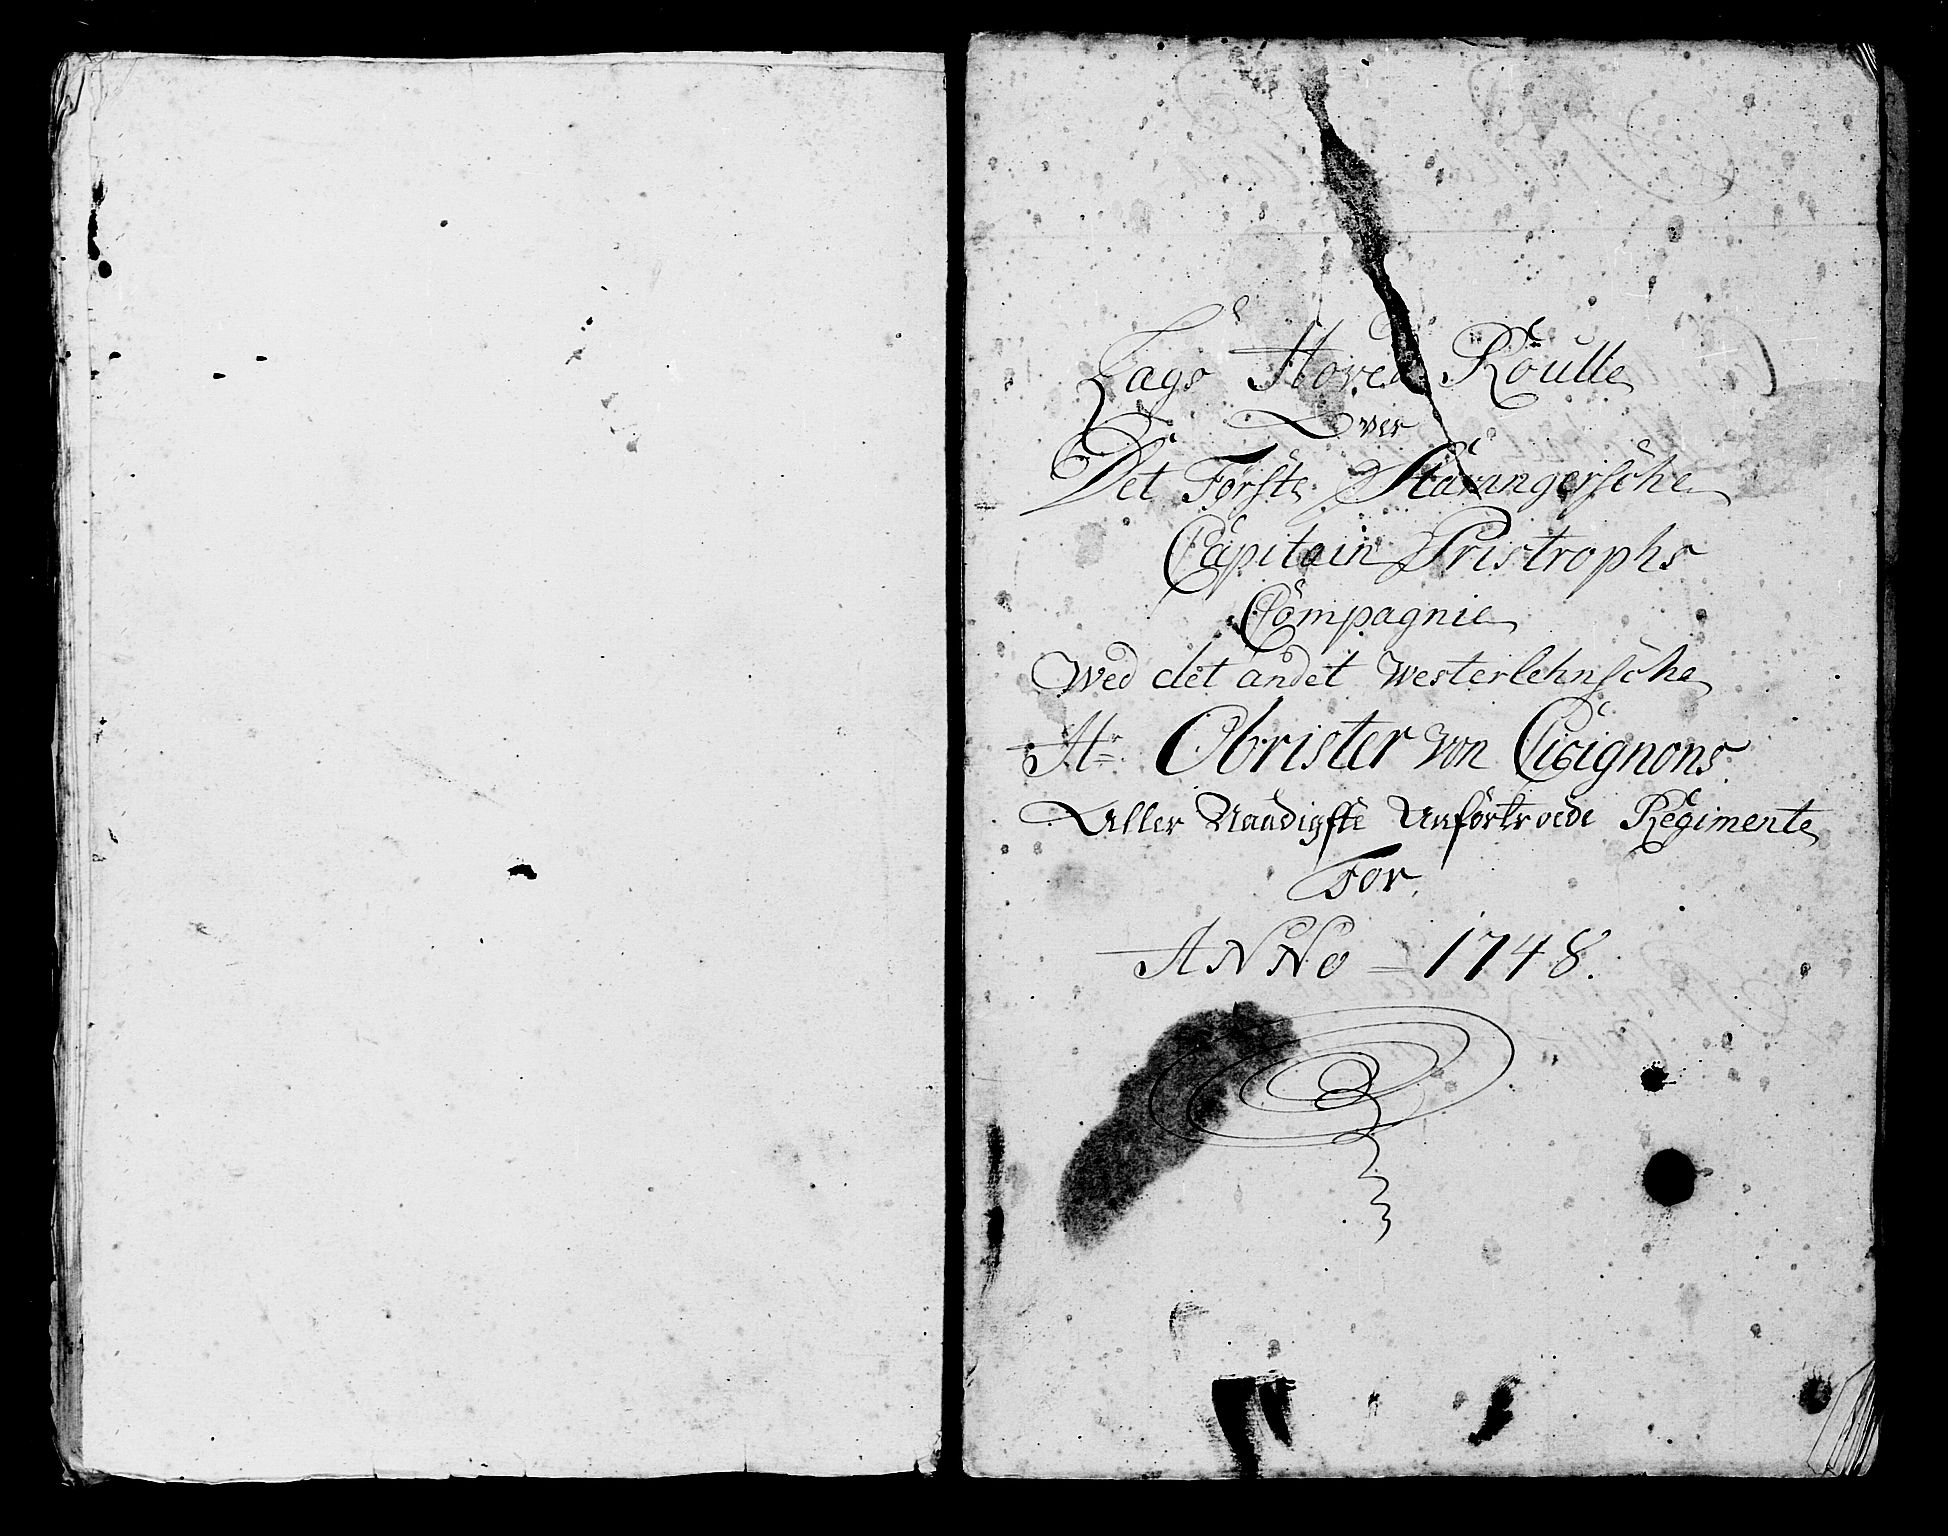 Lags Hoved Roulle
Over
Det Første Stavangersche
Capitain Pristrophs
Compagnie
Wed det andet Westerlehnsche
Hr Obrister von Cicignons
Aller Naadigste Anfortroede Regimente
For
ANNo - 1748.